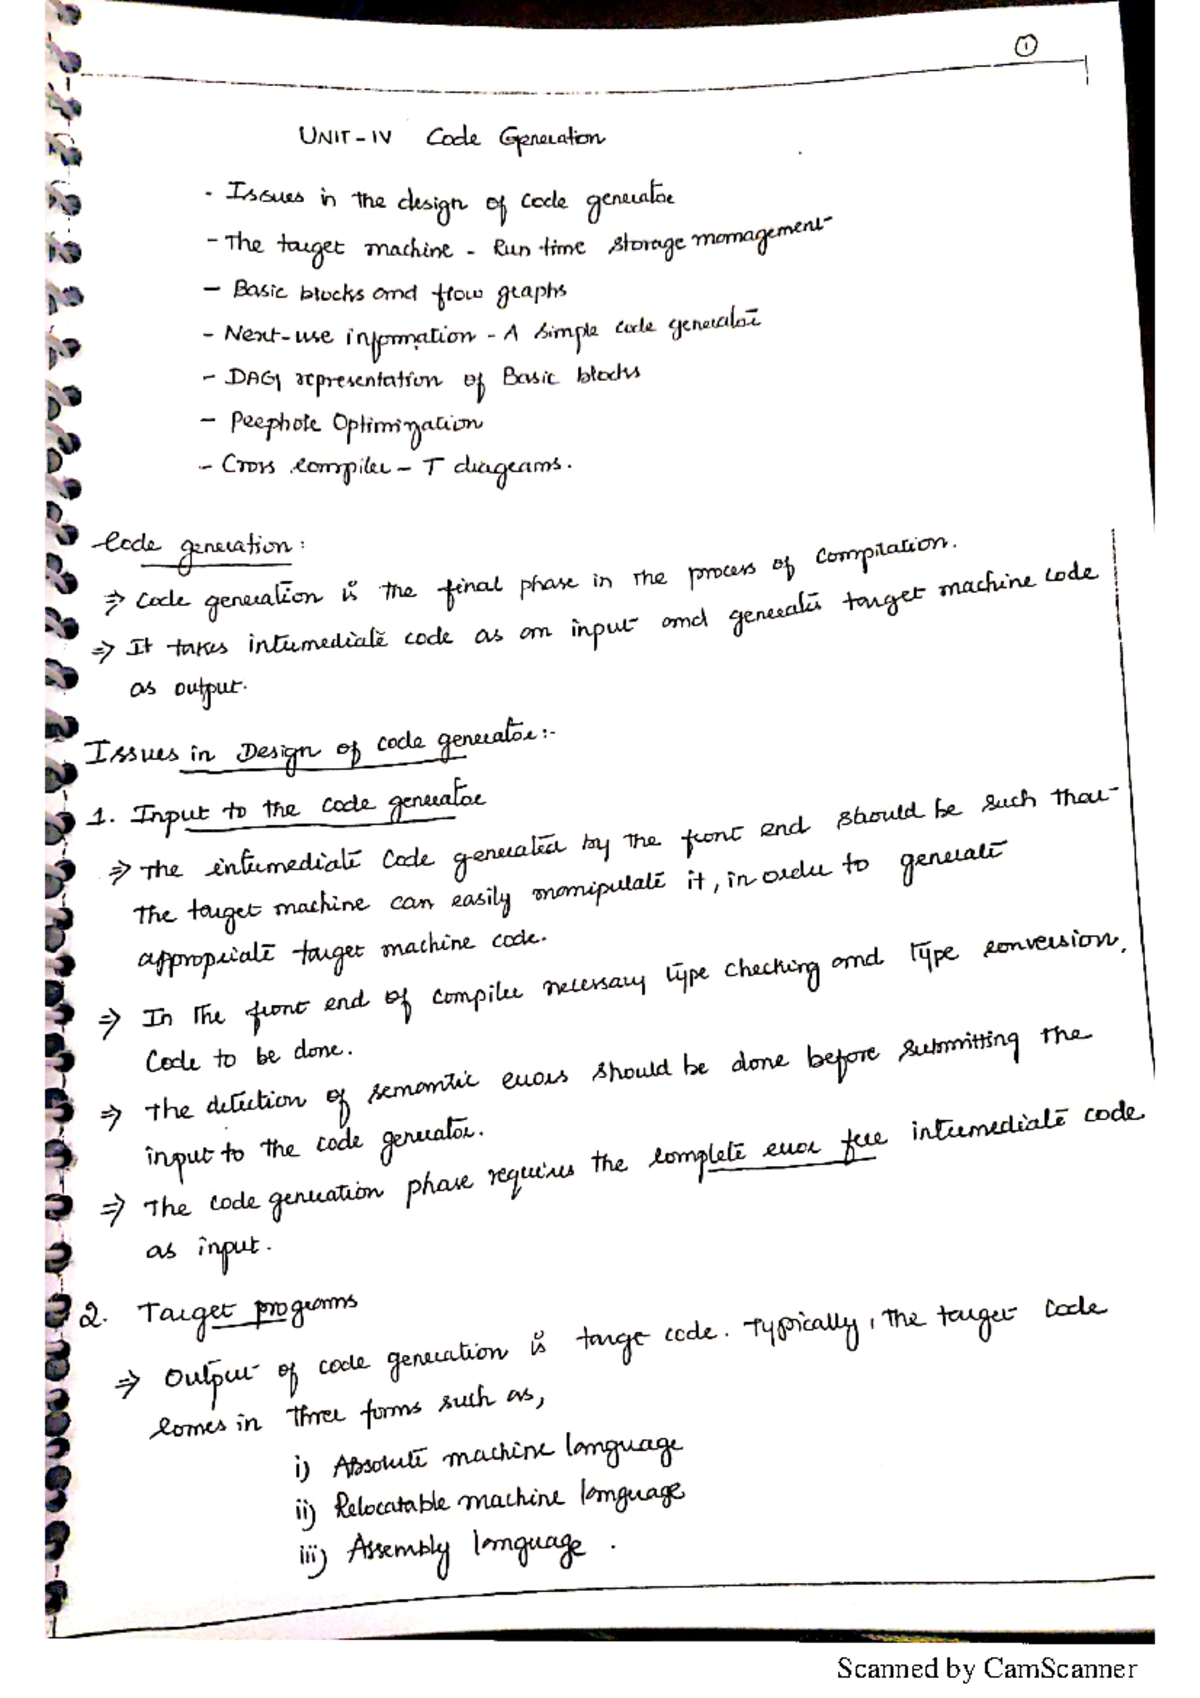 1
UNIT-IV Code Generation
. Issues in the design of code generator
- The target machine - Run time storage management
- Basic blocks and flow graphs
- Next-use information - A simple code generator
- DAG representation of Basic blocks
- Peephole Optimization
- Cross compiler - T diagrams.
Code generation:
⇒ Code generation is the final phase in the process of compilation.
⇒ It takes intermediate code as an input and generates target machine code
as output.
Issues in Design of code generator:-
1. Input to the code generator
⇒ The intermediate code generated by the front end should be such that
the target machine can easily manipulate it, in order to generate
appropriate target machine code.
⇒ In the front end of compiler necessary type checking and type conversion.
Code to be done.
⇒ The detection of semantic errors should be done before submitting the
input to the code generator.
⇒ The code generation phase requires the complete error free intermediate code
as input.
2. Target programs
⇒ Output of code generation is targe code. Typically, the target code
comes in three forms such as,
i) Absolute machine language
ii) Relocatable machine language
iii) Assembly language.
Scanned by CamScanner